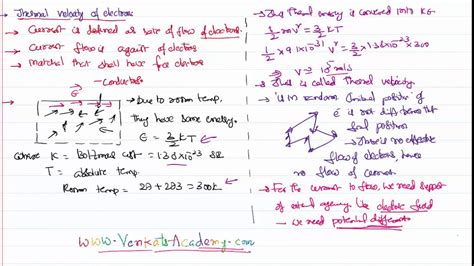 Thermal velocity of electrons
→ Current is defined as rate of flow of electrons.
→ Current flow is against of electrons
→ Matchel that shall have free electrons
- Conductors
→ Due to room temp,
they have some energy.
E = 3/2 KT
where K = Boltzmans const = 1.38×10^-23 SI
T = absolute temp.
Room temp = 27 + 273 = 300K
www.Venkats Academy.com
→ This Thermal energy is converted into KE
1/2 mv² = 3/2 KT
1/2 × 9.1×10^-31 V² = 3/2 × 1.38×10^-23 × 300
⇒ V ≅ 10^5 m/s
→ This is called Thermal velocity.
→ is in random (initial position of
e is not different from
final position
→ There is no effective
flow of electrons, hence
no flow of current
→ For the current to flow, we need support
of external agency like electric field
→ we need potential difference